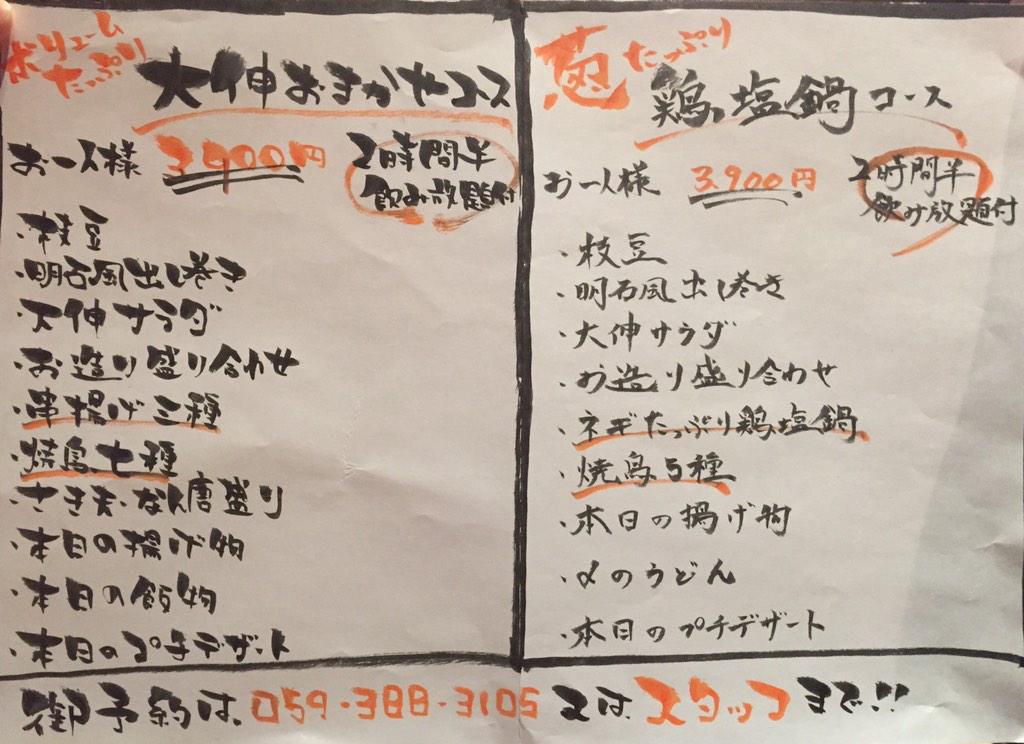 ボリューム
たっぷり
大伸おまかせコース
お一人様 3,900円
2時間半
飲み放題付
・枝豆
・明石風出し巻き
・大伸サラダ
・お造り盛り合わせ
・串揚げ三種
・焼鳥七種
・ささみ・なん唐盛り
・本日の揚げ物
・本日の飯物
・本日のプチデザート
葱たっぷり
鶏塩鍋コース
お一人様 3,900円
2時間半
飲み放題付
・枝豆
・明石風出し巻き
・大伸サラダ
・お造り盛り合わせ
・ネギたっぷり鶏塩鍋
・焼鳥5種
・本日の揚げ物
・〆のうどん
・本日のプチデザート
御予約は 059-388-3105 又は スタッフまで!!